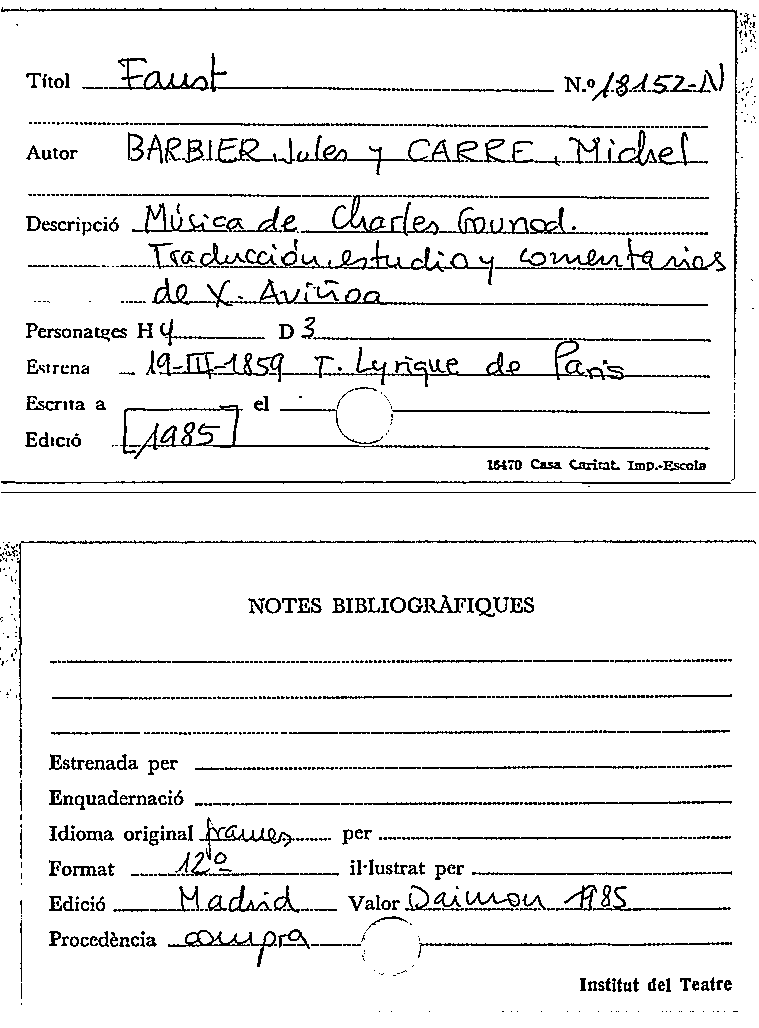 Títol Faust N.º 18152-N
Autor BARBIER, Jules y CARRE, Michel
Descripció Música de Charles Gounod.
Traducción, estudio y comentarios
de X. Aviñoa
Personatges H 4 D 3
Estrena 19-III-1859 T. Lyrique de Paris
Escrita a el
Edició [1985]
16470 Casa Caritat. Imp.-Escola
NOTES BIBLIOGRÀFIQUES
Estrenada per
Enquadernació
Idioma original frances per
Format 12º il·lustrat per
Edició Madrid Valor Daimon 1985
Procedència compra
Institut del Teatre